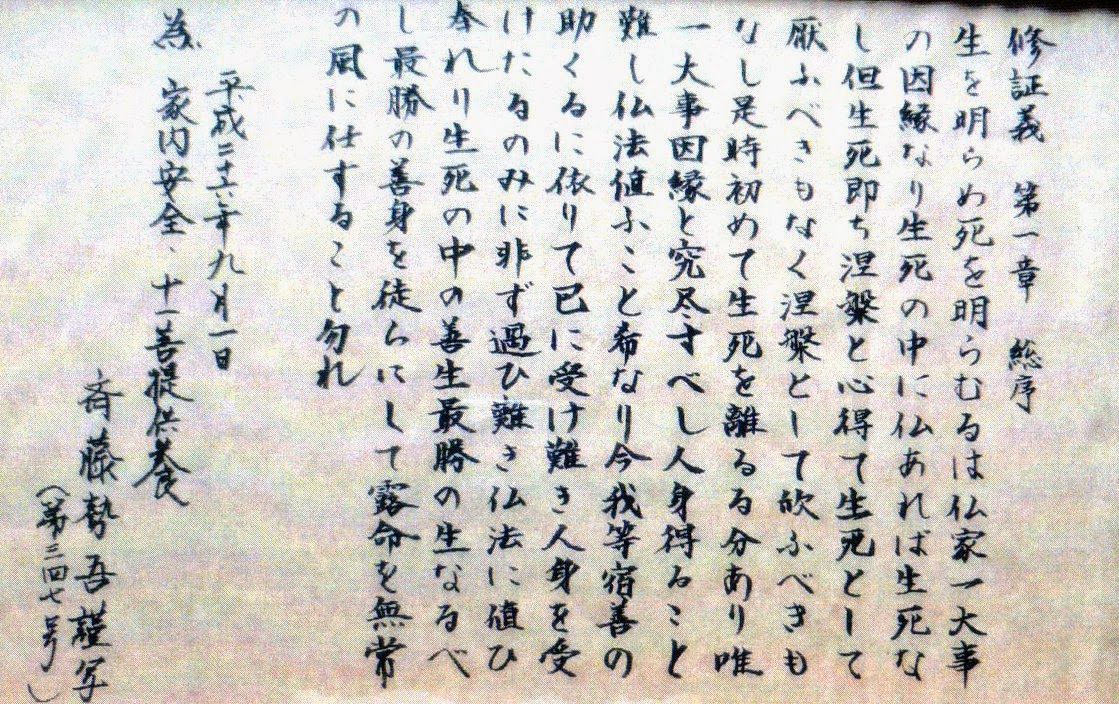 修証義　第一章　総序
生を明らめ死を明らむるは仏家一大事
の因縁なり生死の中に仏あれば生死な
し但生死即ち涅槃と心得て生死として
厭ふべきもなく涅槃として欣ふべきも
なし是時初めて生死を離るる分あり唯
一大事因縁と究尽すべし人身得ること
難し仏法値ふこと希なり今我等宿善の
助くるに依りて已に受け難き人身を受
けたるのみに非ず遇ひ難き仏法に値ひ
奉れり生死の中の善生最勝の生なるべ
し最勝の善身を徒らにして露命を無常
の風に任すること勿れ
平成二十六年九月一日
為　家内安全、十一善提供養
斉藤勢吾謹写
（第三四七号）